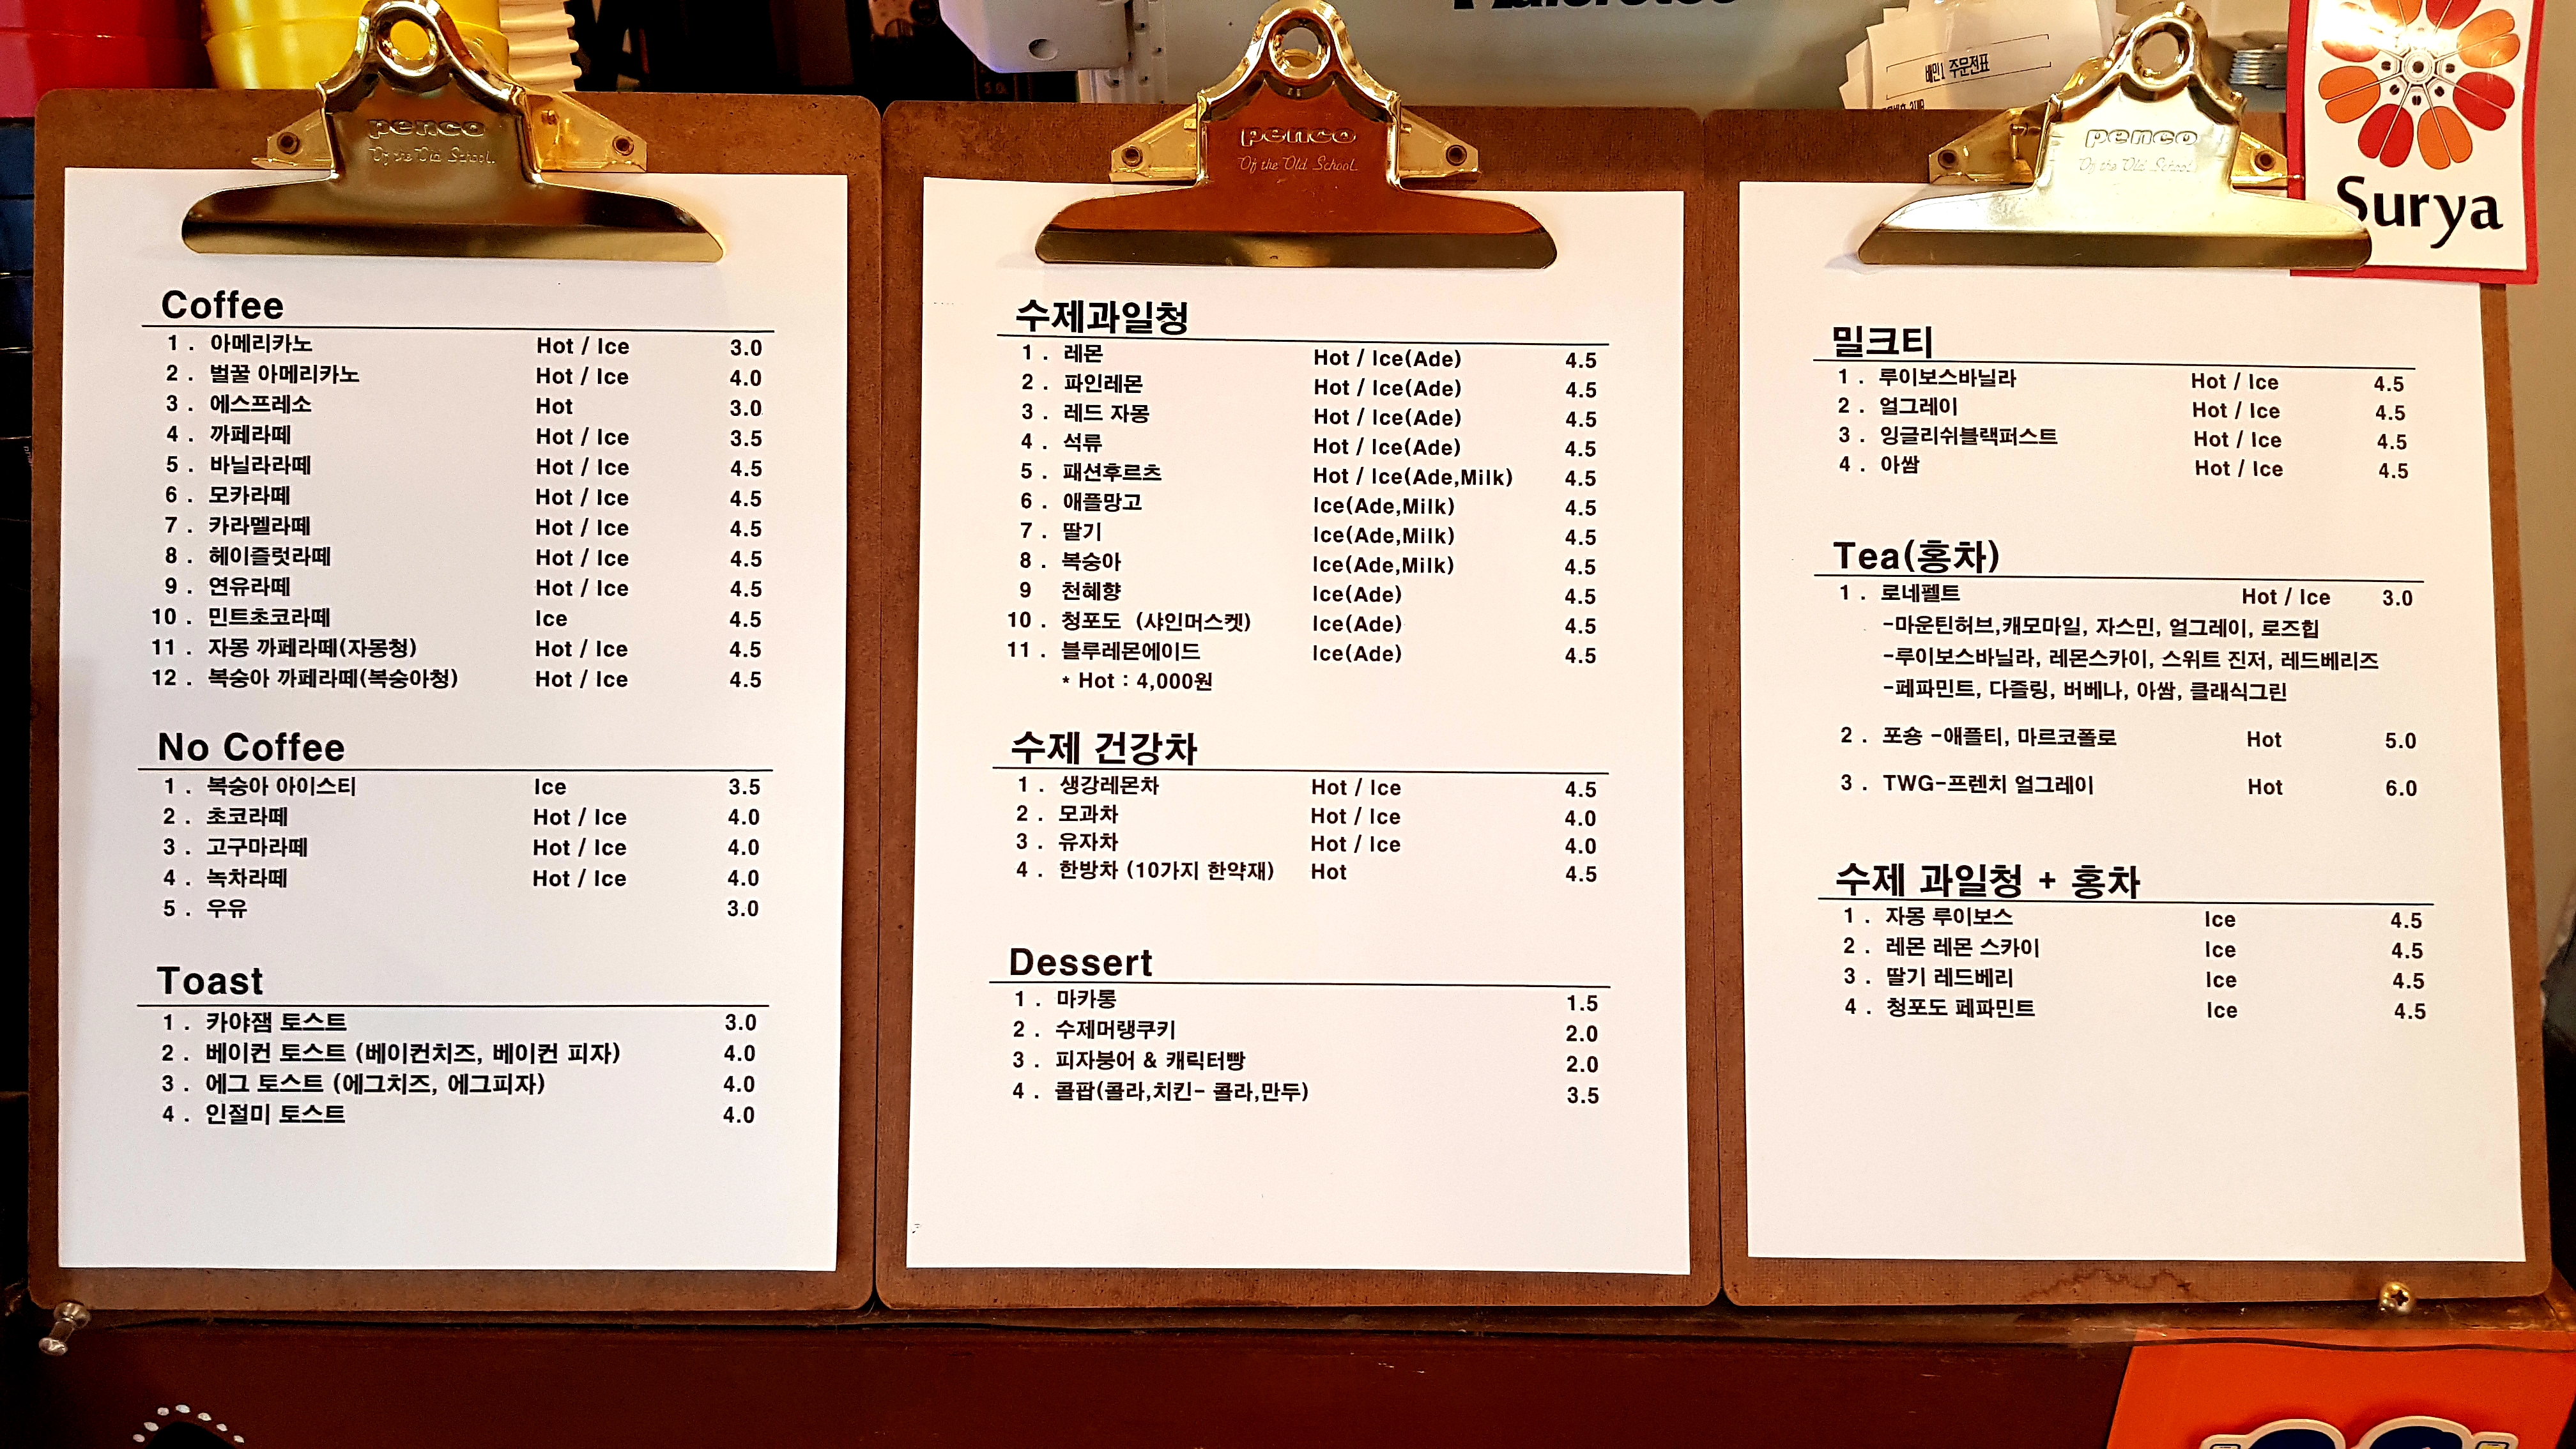 배민1 주문전표
penco
Of the Old School.
Coffee
1 . 아메리카노 Hot / Ice 3.0
2 . 벌꿀 아메리카노 Hot / Ice 4.0
3 . 에스프레소 Hot 3.0
4 . 까페라떼 Hot / Ice 3.5
5 . 바닐라라떼 Hot / Ice 4.5
6 . 모카라떼 Hot / Ice 4.5
7 . 카라멜라떼 Hot / Ice 4.5
8 . 헤이즐럿라떼 Hot / Ice 4.5
9 . 연유라떼 Hot / Ice 4.5
10 . 민트초코라떼 Ice 4.5
11 . 자몽 까페라떼(자몽청) Hot / Ice 4.5
12 . 복숭아 까페라떼(복숭아청) Hot / Ice 4.5
No Coffee
1 . 복숭아 아이스티 Ice 3.5
2 . 초코라떼 Hot / Ice 4.0
3 . 고구마라떼 Hot / Ice 4.0
4 . 녹차라떼 Hot / Ice 4.0
5 . 우유 3.0
Toast
1 . 카야잼 토스트 3.0
2 . 베이컨 토스트 (베이컨치즈, 베이컨 피자) 4.0
3 . 에그 토스트 (에그치즈, 에그피자) 4.0
4 . 인절미 토스트 4.0
penco
Of the Old School.
수제과일청
1 . 레몬 Hot / Ice(Ade) 4.5
2 . 파인레몬 Hot / Ice(Ade) 4.5
3 . 레드 자몽 Hot / Ice(Ade) 4.5
4 . 석류 Hot / Ice(Ade) 4.5
5 . 패션후르츠 Hot / Ice(Ade,Milk) 4.5
6 . 애플망고 Ice(Ade,Milk) 4.5
7 . 딸기 Ice(Ade,Milk) 4.5
8 . 복숭아 Ice(Ade,Milk) 4.5
9 천혜향 Ice(Ade) 4.5
10 . 청포도 (샤인머스켓) Ice(Ade) 4.5
11 . 블루레몬에이드 Ice(Ade) 4.5
* Hot : 4,000원
수제 건강차
1 . 생강레몬차 Hot / Ice 4.5
2 . 모과차 Hot / Ice 4.0
3 . 유자차 Hot / Ice 4.0
4 . 한방차 (10가지 한약재) Hot 4.5
Dessert
1 . 마카롱 1.5
2 . 수제머랭쿠키 2.0
3 . 피자붕어 & 캐릭터빵 2.0
4 . 콜팝(콜라,치킨- 콜라,만두) 3.5
penco
Of the Old School.
Surya
밀크티
1 . 루이보스바닐라 Hot / Ice 4.5
2 . 얼그레이 Hot / Ice 4.5
3 . 잉글리쉬블랙퍼스트 Hot / Ice 4.5
4 . 아쌈 Hot / Ice 4.5
Tea(홍차)
1 . 로네펠트 Hot / Ice 3.0
-마운틴허브,캐모마일, 자스민, 얼그레이, 로즈힙
-루이보스바닐라, 레몬스카이, 스위트 진저, 레드베리즈
-페파민트, 다즐링, 버베나, 아쌈, 클래식그린
2 . 포숑 -애플티, 마르코폴로 Hot 5.0
3 . TWG-프렌치 얼그레이 Hot 6.0
수제 과일청 + 홍차
1 . 자몽 루이보스 Ice 4.5
2 . 레몬 레몬 스카이 Ice 4.5
3 . 딸기 레드베리 Ice 4.5
4 . 청포도 페파민트 Ice 4.5